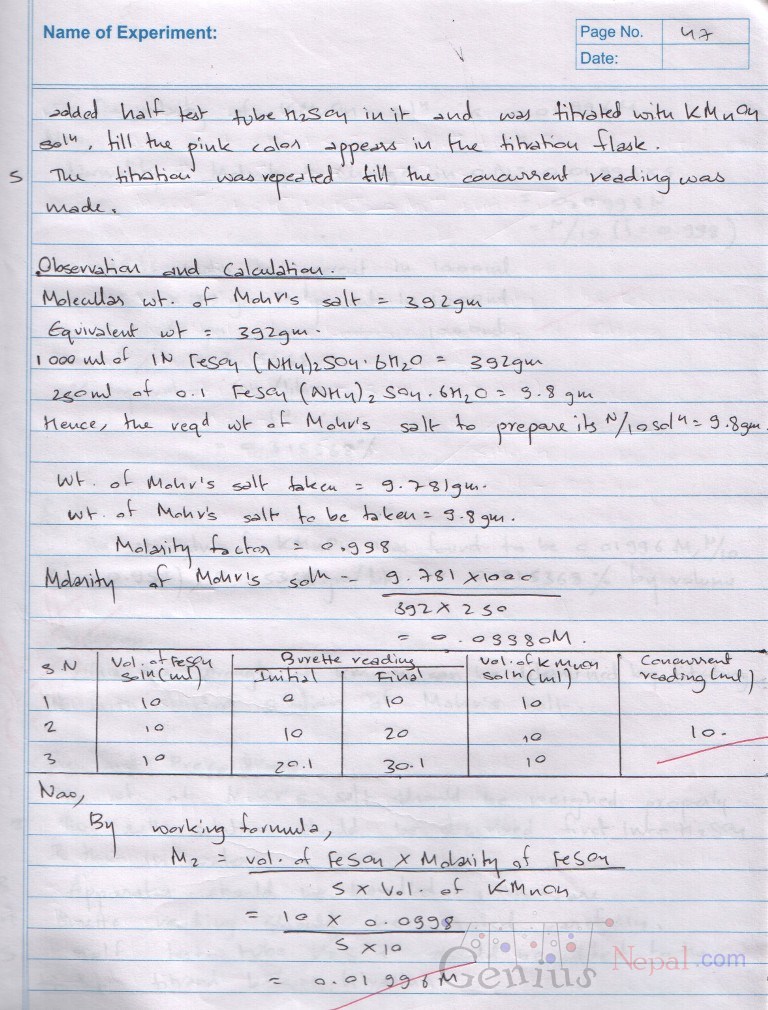 Name of Experiment:
Page No. 47
Date:
added half test tube H2SO4 in it and was titrated with KMnO4
soln, till the pink color appears in the titration flask.
5 The titration was repeated till the concurrent reading was
made.
Observation and Calculation.
Molecular wt. of Mohr's salt = 392gm
Equivalent wt = 392gm.
1000 ml of 1N FeSO4 (NH4)2SO4. 6H2O = 392gm
250ml of 0.1 FeSO4 (NH4)2 SO4. 6H2O = 9.8 gm
Hence, the reqd wt of Mohr's salt to prepare its N/10 soln = 9.8gm.
Wt. of Mohr's salt taken = 9.781gm.
Wt. of Mohr's salt to be taken = 9.8gm.
Molarity factor = 0.998
Molarity of Mohr's soln = 9.781 x 1000
392 x 250
= 0.09980M.
S N Vol. of FeSO4 soln (ml) Burette reading Vol. of KMnO4 soln (ml) Concurrent reading (ml)
Initial Final
1 10 0 10 10
2 10 10 20 10 10.
3 10 20.1 30.1 10
Now,
By working formula,
M2 = vol. of FeSO4 x Molarity of FeSO4
5 x Vol. of KMnO4
= 10 x 0.0998
5 x 10
= 0.01996M
Genius Nepal.com